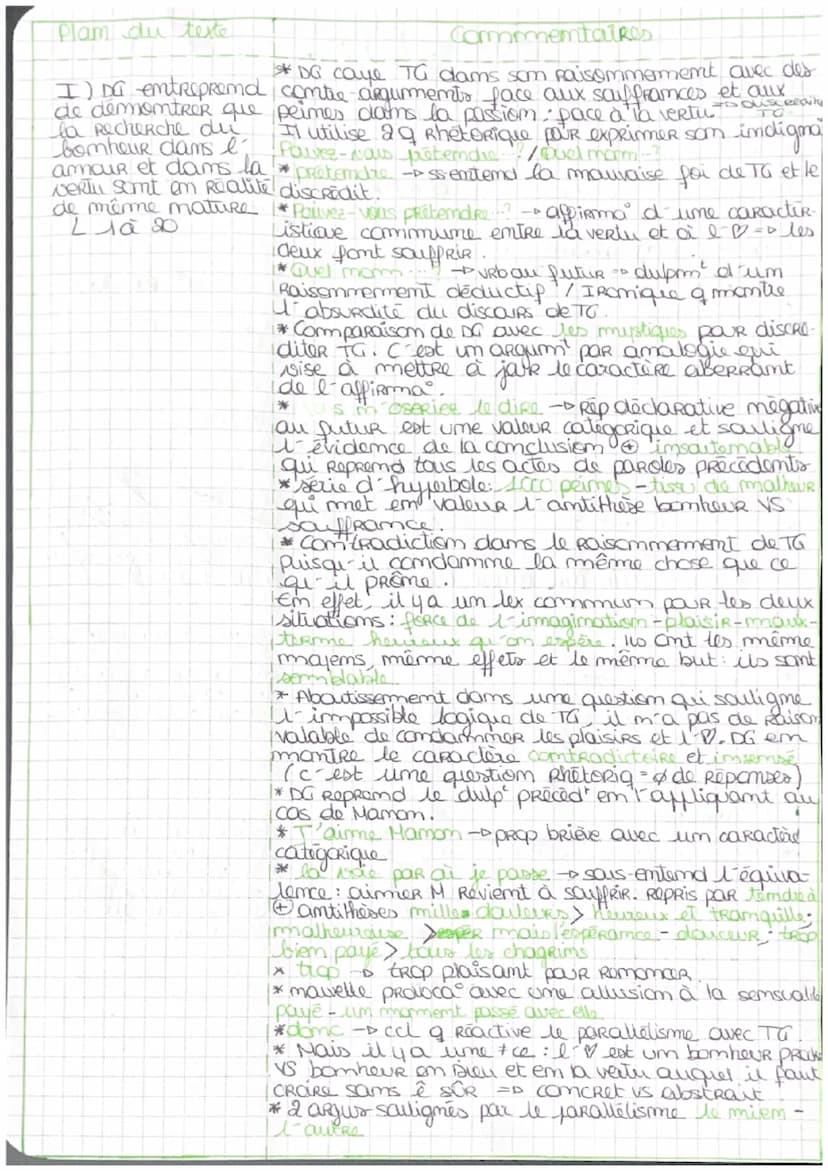 Plan du texte
Commentaires
I) DG entreprend
de démontrer que
la recherche du
bonheur dans l'
amour et dans la
vertu sont en réalité
de même nature
L 1 à 20
* DG caye TG dans son raisonnement avec des
contre-arguments face aux souffrances et aux
peines dans la passion : face à la vertu
TG
Il utilise 2 q rhétorique pour exprimer son indigna°
Pouvez-vous prétendre ..? / Quel nom ..?
* prétendre → ss entend la mauvaise foi de TG et le
discrédit.
* Pouvez-vous prétendre ..? → affirma° d'une caractér-
istique commune entre la vertu et où l'♡ => les
deux font souffrir.
* Quel nom ...? → vrb au futur → dvlpmt d'un
Raisonnement déductif / Ironique q montre
l'absurdité du discours de TG.
* Comparaison de DG avec les mystiques pour discré-
diter TG. C'est un argumt par analogie qui
vise à mettre à jour le caractère aberrant
de l'affirma°.
* s n'oseriez le dire → Rép déclarative négative
au futur est une valeur catégorique et souligne
l'évidence de la conclusion ⊕ insoutenable
qui reprend tous les actes de paroles précédents
* série d'hyperbole : 1000 peines - tissu de malheur
qui met en valeur l'antithèse bonheur VS
souffrance.
* Contradiction dans le raisonnement de TG
puisqu'il condamne la même chose que ce
qu'il prône.
En effet, il y a un lex commun pour les deux
situations : force de l'imagination - plaisir - maux -
terme heureux qu'on espère. Ils ont les même
moyens, même effets et le même but : ils sont
semblable
* Aboutissement dans une question qui souligne
l'impossible logique de TG, il n'a pas de raison
valable de condamner les plaisirs et l'♡. DG en
montre le caractère contradictoire et insensé
(c'est une question rhétoriq = ø de réponses)
* DG reprend le dvlpt précédt en l'appliquant au
cas de Manon.
* J'aime Manon → prop brière avec un caractère
catégorique
* la voie par où je passe → sous-entend l'équiva-
lence : aimer M revient à souffrir. Repris par tendre à
⊕ antithèses mille douleurs > heureux et tranquille ;
malheureuse > mais l'espérance - douceur ; trop
bien payé > tous les chagrins
* trop → trop plaisant pour Romancer
* nouvelle provoca° avec une allusion à la sensualité
payé - un moment passé avec elle
* donc → ccl q réactive le parallélisme avec TG.
* Mais il y a une ≠ce : l'♡ est un bonheur
VS bonheur en Dieu et en la vertu auquel il faut
croire sans ê sûr => concret vs abstrait
* 2 argus soulignés par le parallélisme le mien -
l'autre